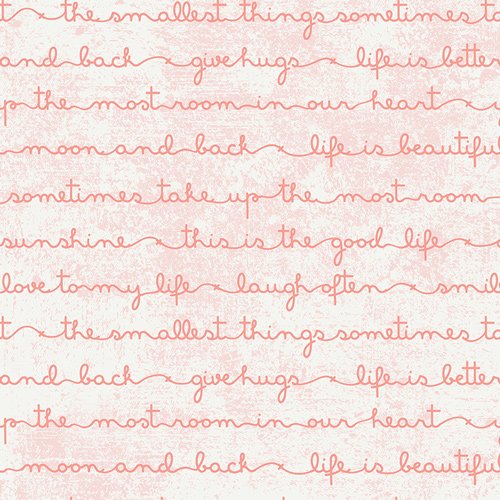 the smallest things sometimes
and back give hugs life is better
the most room in our heart
moon and back life is beautiful
sometimes take up the most room
sunshine this is the good life
love to my life laugh often
the smallest things sometimes
and back give hugs life is better
the most room in our heart
moon and back life is beautiful